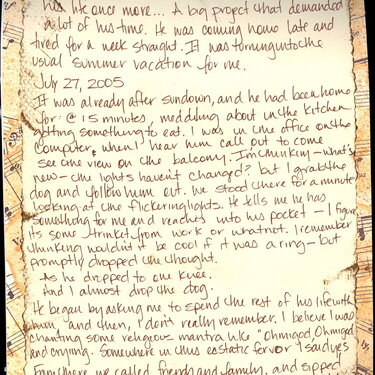 his life once more... A big project that demanded
a lot of his time. He was coming home late and
tired for a week straight. It was turning into the
usual summer vacation for me.
July 27, 2005
It was already after sundown, and he had been home
for @ 15 minutes, meddling about in the kitchen
getting something to eat. I was in the office on the
computer, when I hear him call out to come
see the view on the balcony. Im thinking - what's
new - the lights haven't changed? but I grab the
dog and follow him out. We stood there for a minute
looking at the flickering lights. He tells me he has
something for me and reaches into his pocket - I figure
its some trinket from work or whatnot. I remember
thinking wouldn't it be cool if it was a ring - but
promptly dropped the thought.
As he dropped to one knee.
And I almost drop the dog.
He began by asking me to spend the rest of his life with
him, and then, I don't really remember. I believe I was
chanting some religious mantra like "Ohmigod Ohmigod
and crying. Somewhere in this ecstatic fervor I said yes
From there we called friends and family, and sipped